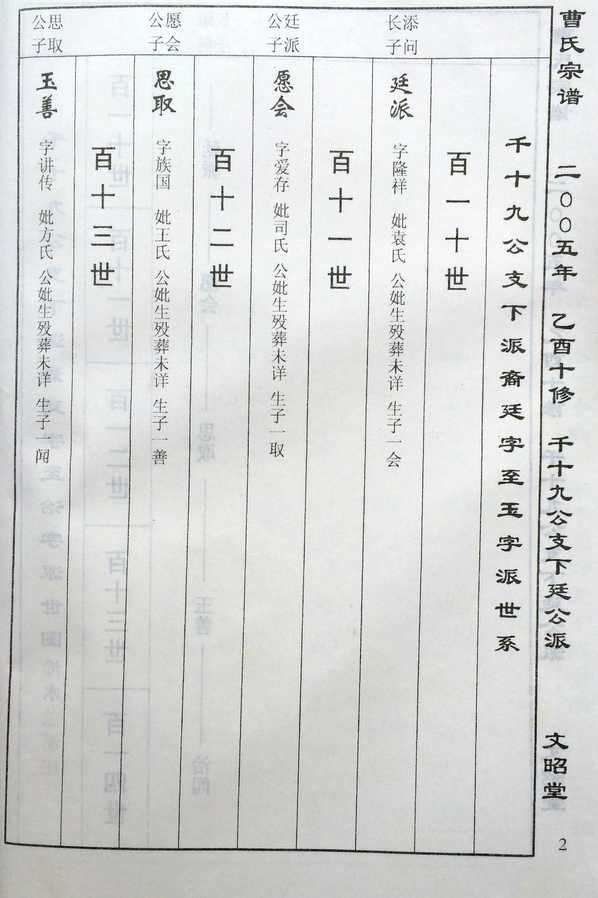 曹氏宗谱 二〇〇五年 乙酉十修 千十九公支下廷公派 文昭堂 2
千十九公支下派裔廷字至玉字派世系
百一十世
添问
长子
廷派 字隆祥 妣袁氏 公妣生殁葬未详 生子一会
百十一世
廷派
公子
愿会 字爱存 妣司氏 公妣生殁葬未详 生子一取
百十二世
愿会
公子
思取 字族国 妣王氏 公妣生殁葬未详 生子一善
百十三世
思取
公子
玉善 字讲传 妣方氏 公妣生殁葬未详 生子一闻